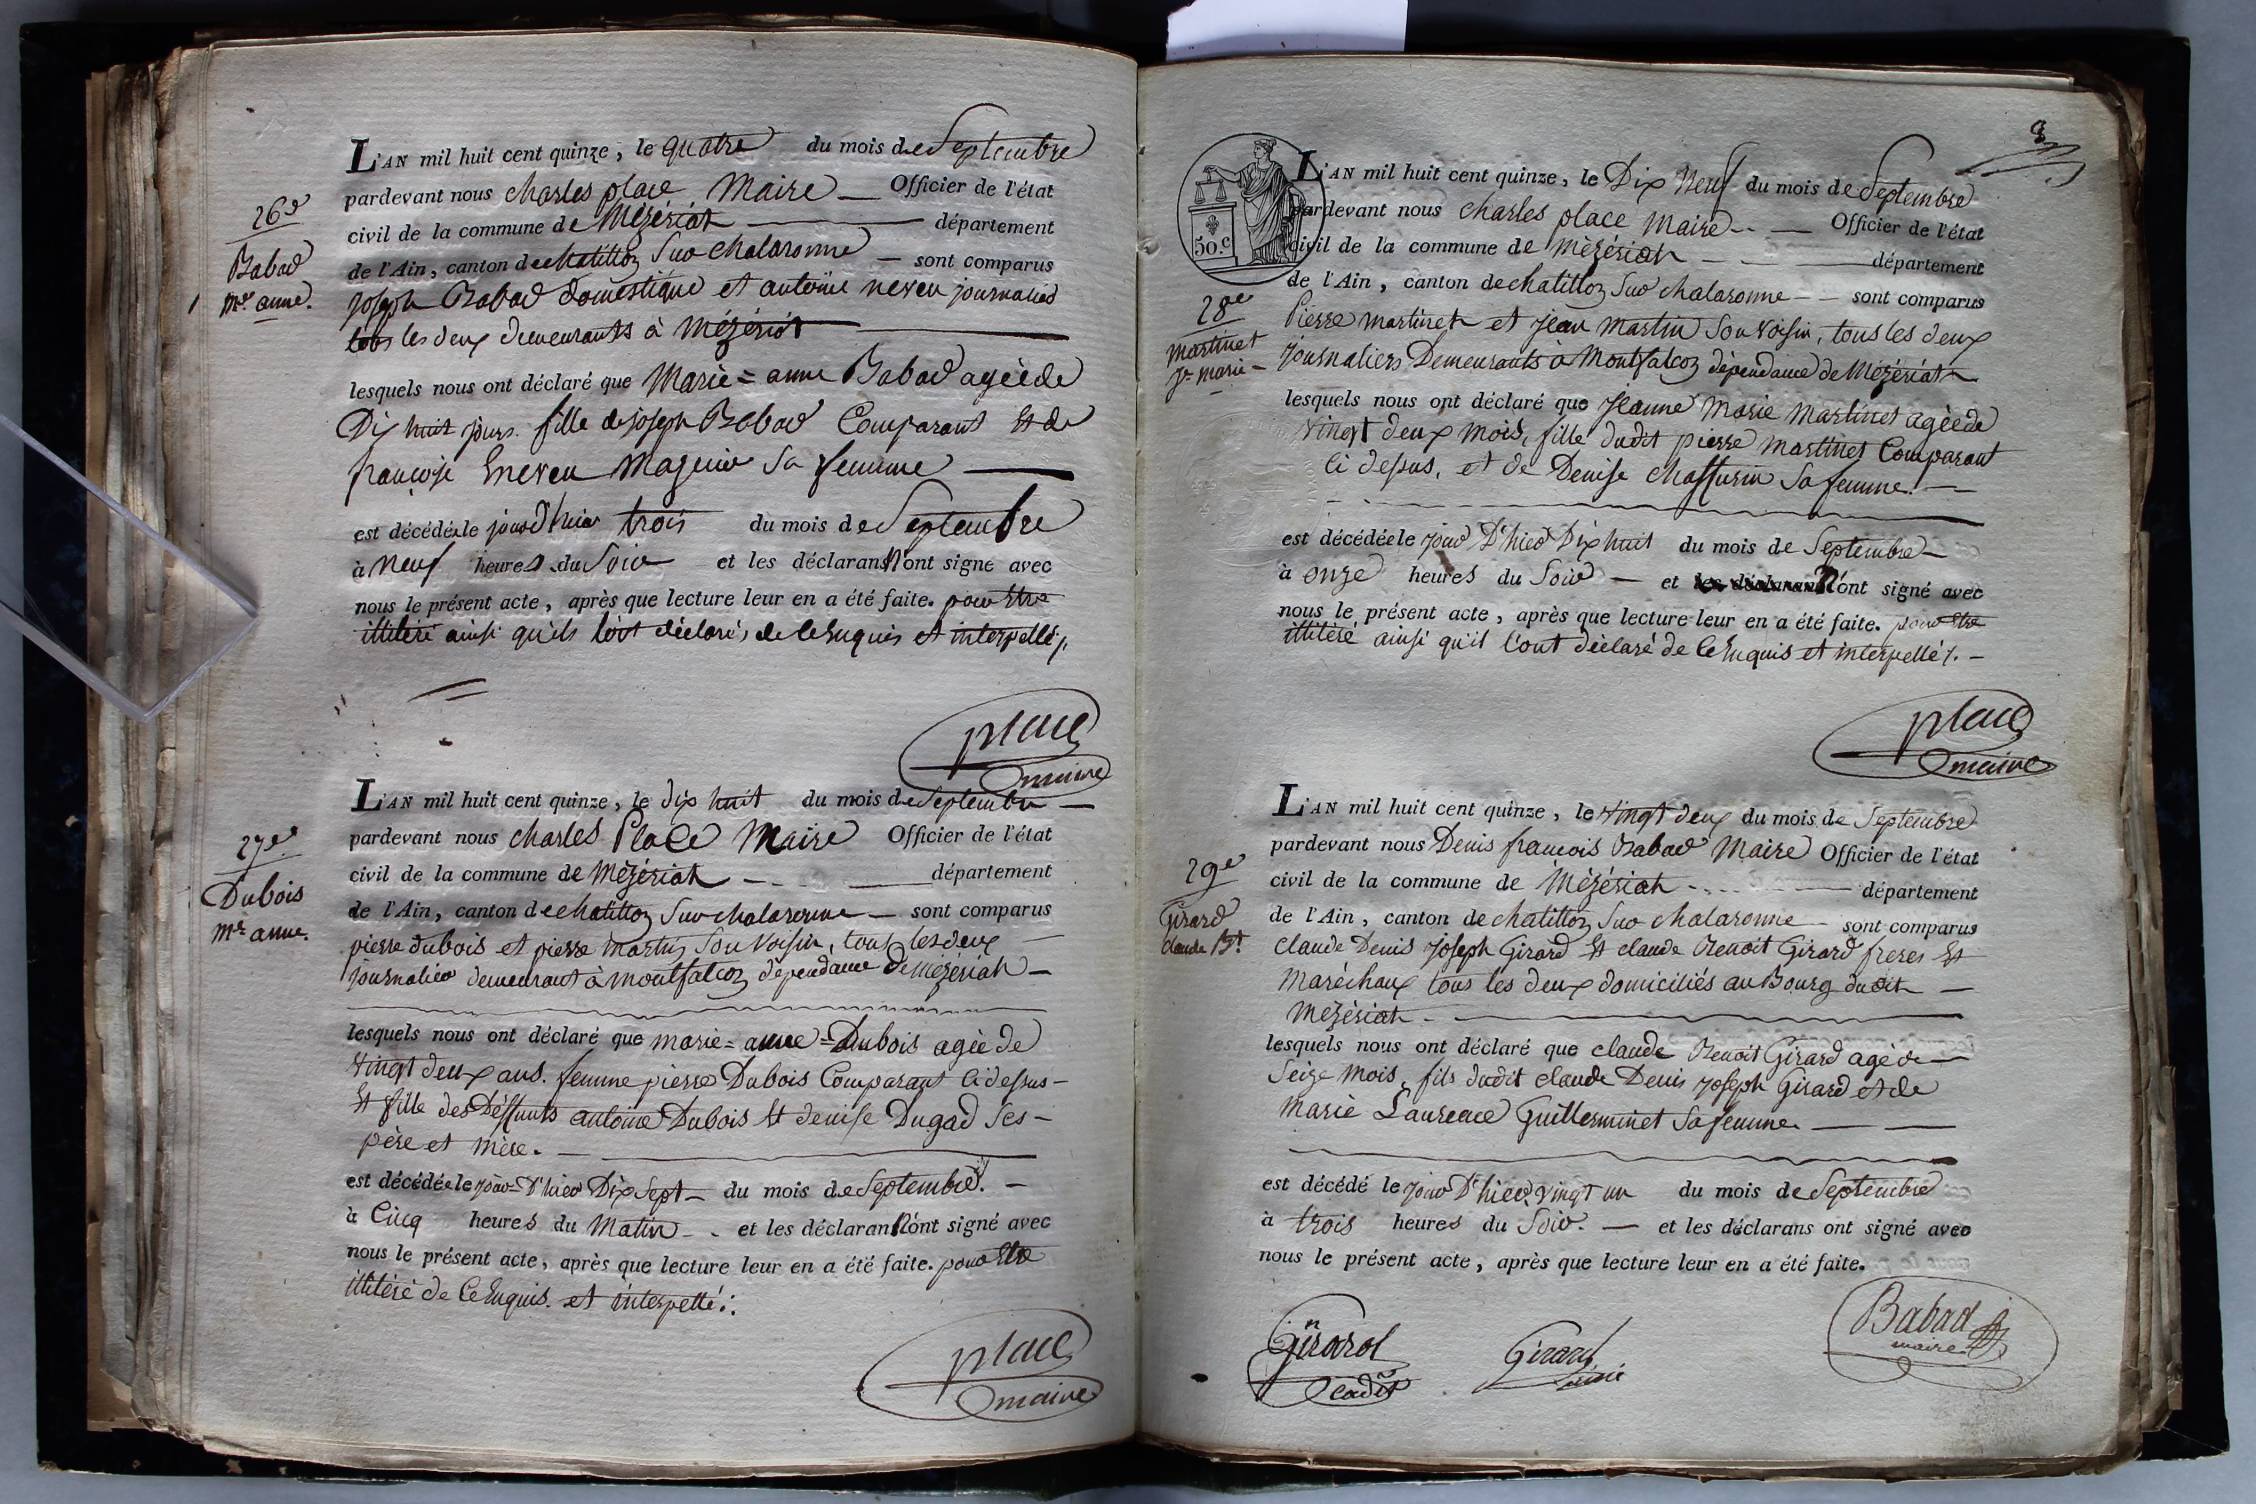 L'AN mil huit cent quinze, le quatre du mois de Septembre
pardevant nous charles place Maire — Officier de l'état
civil de la commune de Mézériat — département
de l'Ain, canton de chatillon Sur chalaronne — sont comparus
joseph Babad domestique et antoine neveu journalier
tous les deux demeurants à Mézériat
26e
Babad
Mie anne.
lesquels nous ont déclaré que Marie=anne Babad agéede
Dix huit jours. fille de joseph Babad Comparant Et de
françoise Sa femme
est décédéele jour d'hier trois du mois de Septembre
à neuf heures du Soir et les déclarans N'ont signé avec
nous le présent acte, après que lecture leur en a été faite. pour Etre
illitéré ainsi qu'ils l'ont déclaré, de ce Enquis et interpellé/.
place
maire
L'AN mil huit cent quinze, le dix huit du mois de Septembre —
pardevant nous charles Place Maire Officier de l'état
civil de la commune de Mézériat — département
de l'Ain, canton de chatillon Sur chalaronne — sont comparus
pierre dubois et pierre martin Son Voisin, tous les deux —
journalier demeurant à montfalcon dépendance De Mézériat —
27e
Dubois
Mie anne.
lesquels nous ont déclaré que marie=anne=Dubois agée de
Vingt deux ans. femme pierre Dubois Comparant Ci dessus —
Et fille des Déffunts antoine Dubois Et denise Dugad Ses —
père et mère. —
est décédéele jour D'hier Dix Sept — du mois de Septembre. —
à Cinq heures du Matin — et les déclarans N'ont signé avec
nous le présent acte, après que lecture leur en a été faite. pour Etre
illitéré de Ce Enquis. et interpellé.
place
maire
50.c
L'AN mil huit cent quinze, le Dix Neuf du mois de Septembre
pardevant nous charles place Maire — Officier de l'état
civil de la commune de Mézériat — département
de l'Ain, canton de chatillon Sur chalaronne — sont comparus
Pierre martinet et jean martin Son Voisin, tous les deux
journaliers Demeurants à Montfalcon dépendance de Mézériat
28e
Martinet
Je marie —
lesquels nous ont déclaré que jeanne Marie Martinet agéede
Vingt deux mois, fille dudit pierre martinet Comparant
Ci dessus, et de Denise Sa femme. —
est décédéele jour D'hier Dix huit du mois de Septembre —
à onze heures du Soir — et les déclarans N'ont signé avec
nous le présent acte, après que lecture leur en a été faite. pour Etre
illitéré ainsi qu'il l'ont déclaré de Ce Enquis et interpellé/. —
place
maire
L'AN mil huit cent quinze, le Vingt deux du mois de Septembre
pardevant nous Denis françois Babad Maire Officier de l'état
civil de la commune de Mézériat — département
de l'Ain, canton de chatillon Sur chalaronne — sont comparus
Claude Denis joseph Girard Et claude Benoit Girard freres Et
Maréchaux tous les deux domiciliés au Bourg dudit —
Mézériat —
29e
Girard
claude Bt.
lesquels nous ont déclaré que claude Benoit Girard agé de —
Seize mois, fils dudit claude Denis joseph Girard et de
Marie Laurence Guillerminet Sa femme. —
est décédé le jour D'hier Vingt un du mois de Septembre
à trois heures du Soir. — et les déclarans ont signé avec
nous le présent acte, après que lecture leur en a été faite.
Girard
cadet
Girard
ainé
Babad
maire